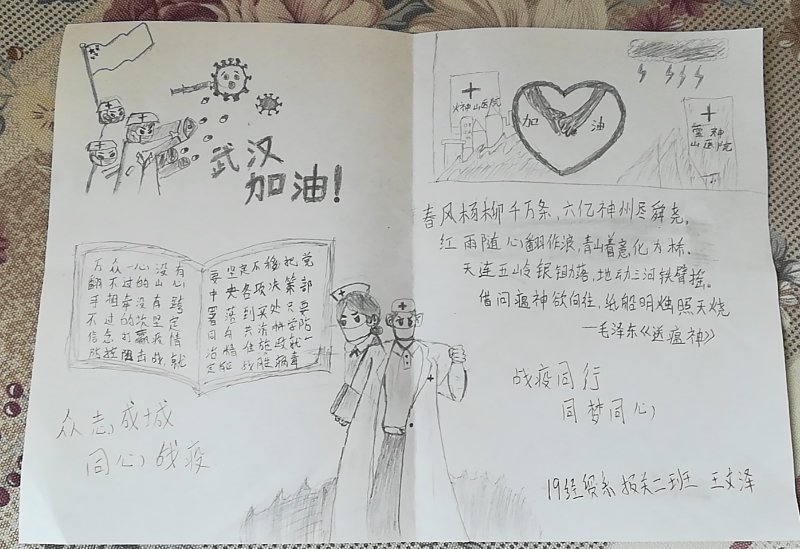 武汉
加油!
万众一心的没有
翻不过的山心
手相牵没有跨
不过的坎坚定
信念打赢疫情
防控阻击战就
要坚定不移把党
中央各项决策部
署落到实处只要
同舟共济科学防
治精准施政就一
定能战胜病毒
众志成城
同心战疫
火神山医院
加油
雷神
山医院
春风杨柳千万条,六亿神州尽舜尧.
红雨随心翻作浪,青山着意化为桥.
天连五岭银锄落,地动三河铁臂摇.
借问瘟神欲何往,纸船明烛照天烧
—毛泽东《送瘟神》
战疫同行
同梦同心
19经贸系报关二班 王文泽